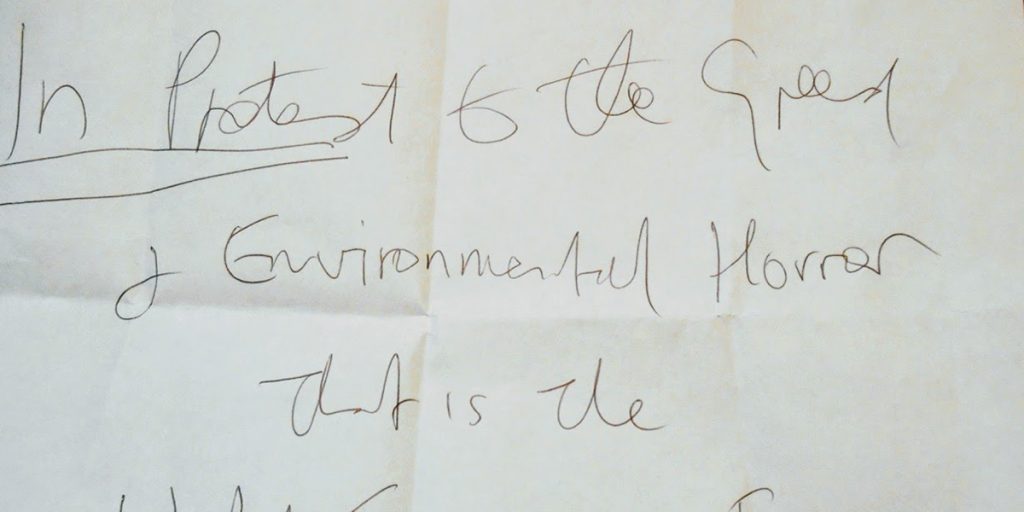 In Protest to the Greed
& Environmental Horror
that is the